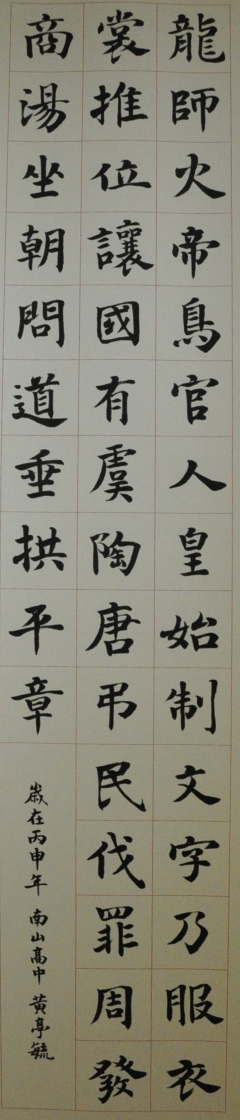 龍師火帝鳥官人皇始制文字乃服衣
裳推位讓國有虞陶唐弔民伐罪周發
商湯坐朝問道垂拱平章
歲在丙申年 南山高中 黃亭毓